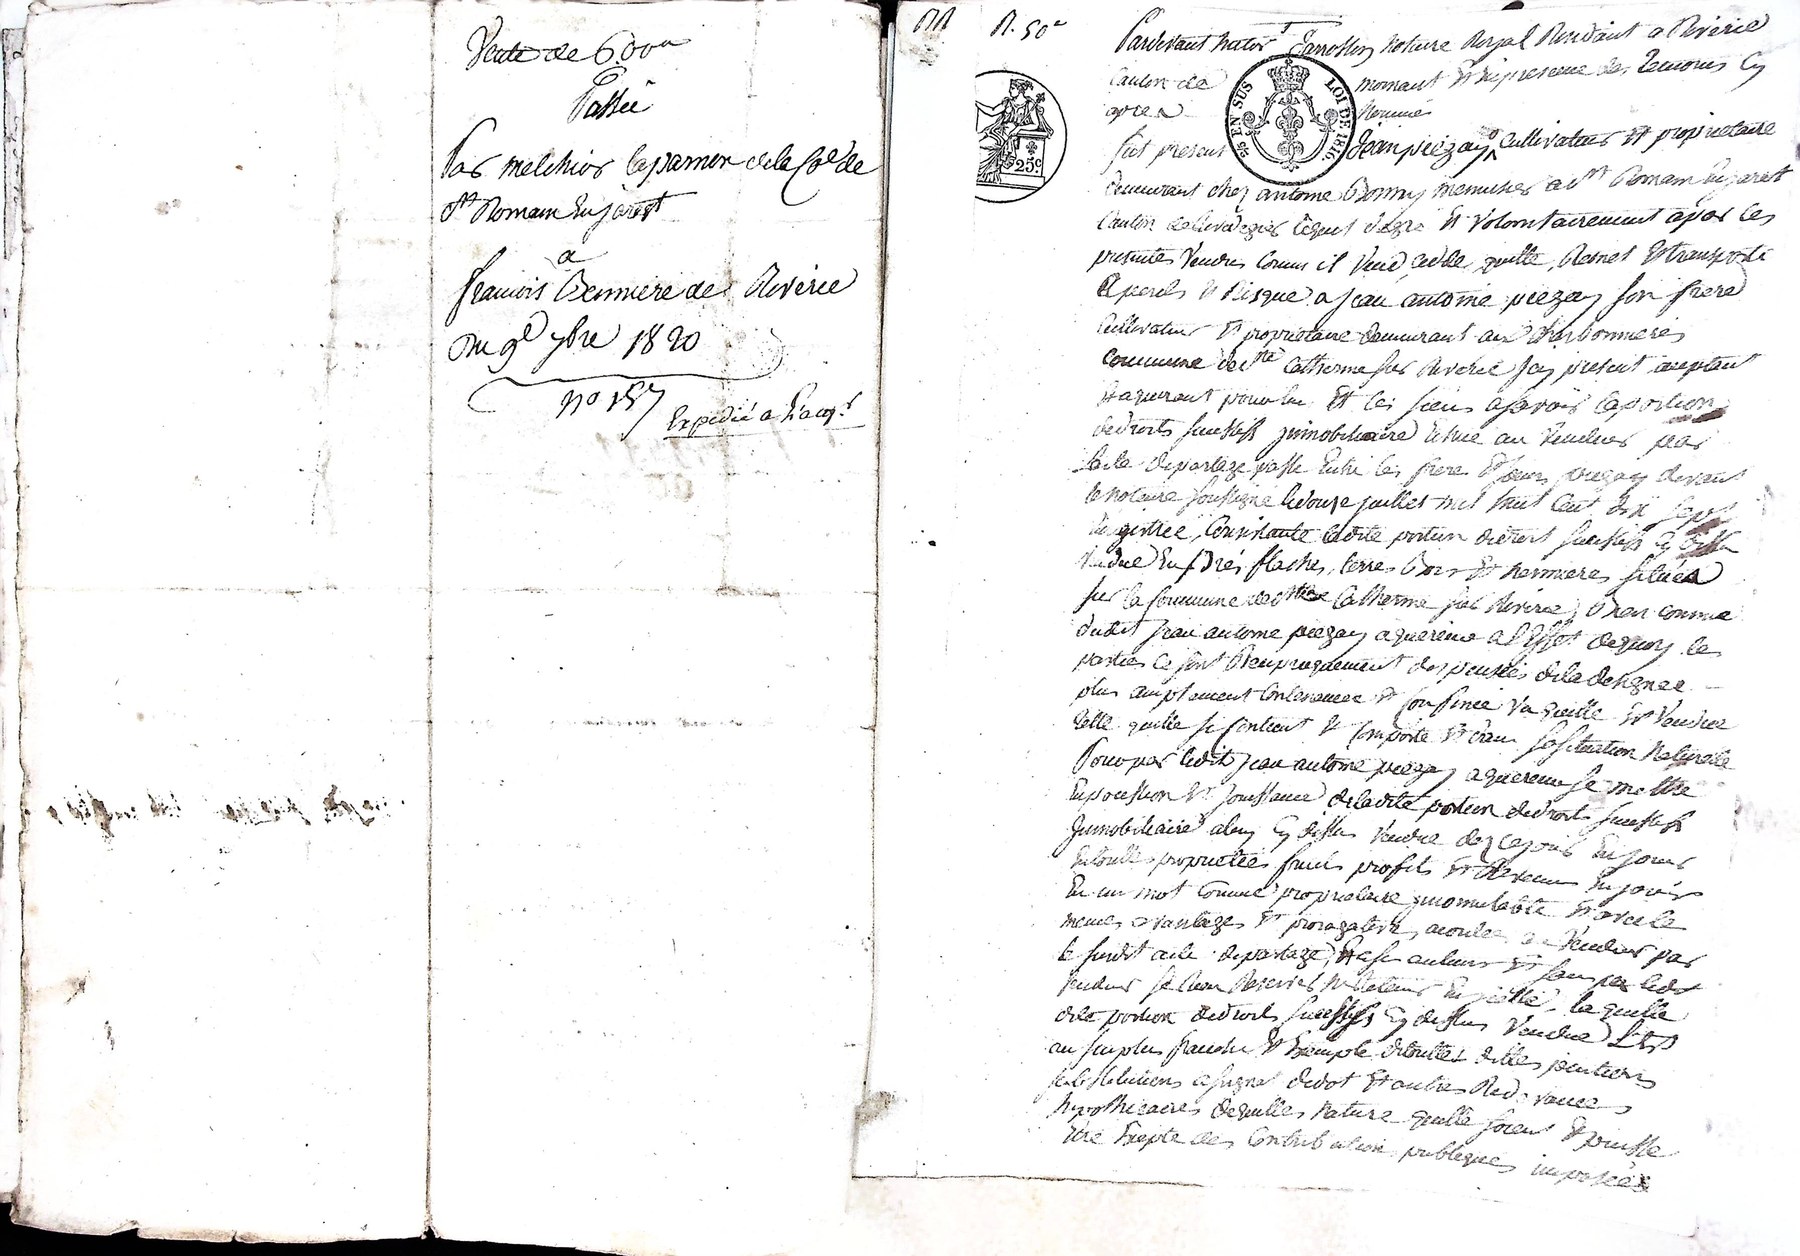 Vente de 600 ll
Passée
Par melchior de la Cne de
St Romain Enjarest
a
francois Bernniere de Riverie
Du 9e 7bre 1820
No 157
Expedié a L'acqr
R. 50c
Pardevant notaire Royal Residant a Riverie
Canton de mornant Et En presence des temoins Cy
apres Nommés
25c
EN SUS
LOI DE 1816
fut present Jean piezay Cultivateur Et propriétaire
demeurant chez antoine menuisier a St Romain Enjarest
Canton de Rivedegier lequel degré Et volontairement a par les
presentes Vendu Comme il Vend Cedde quitte, Remet Et transporte
a perils Et Risque a Jean antoine piezay son frere
Cultivateur Et propriétaire demeurant aux charbonnieres
Commune de Ste Catherine sur Riverie Icy present aceptant
Et aquerant pour lui Et les siens asavoir la portion
de droits Immobiliaire Echue au Vendeur par
l'acte de partage passé Entre les frere Et sœurs piezay devant
le notaire soussigné le douze juillet mil huit cent dix sept
Enregistrée, Consistante ladite portion de droit Cy dessus
Vendue En prés flaches, terres Bois Et hermieres situés
sur la Commune de Ste Catherine sur Riverie, Bien connue
dudit Jean antoine piezay aquereur a l'Effet dequoy les
parties se sont Reciproquement dispensées de la designer
plus amplement Et Confinée Et Vendue
telle quelle se Contient Et Comporte Et dans sa situation Naturelle
Pour par ledit Jean antoine piezay aquereur se mettre
En possession Et Jouissance de ladite portion de droits
Immobiliaire Cy dessus Vendue des ce jour En jouir
En toutte propriettée fruits profits Et Revenus En jouir
En un mot Comme propriétaire Incommutable Et avec les
memes avantages Et prorogatives, acordés au Vendeur par
le susdit acte de partage, Et ses auteurs Et sans par ledit
Vendeur se Rien Reserver Ni Retenir laquelle
dite portion de droits Cy dessus Vendue Est
au surplus franche Et Exempte de touttes dettes pentions
substitutions Et autres Redevances
hypothecaires dequelles Nature quelle soient Et puisse
Etre Exepté des Contributions publiques imposées